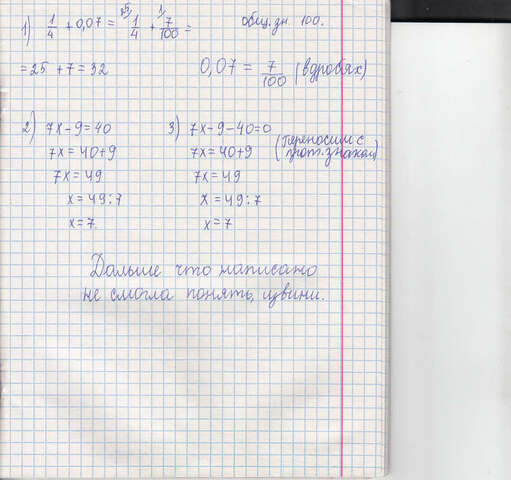 1) 1/4 + 0,07 = 25/ 1/4 + 1/ 7/100 = общ. зн. 100.
= 25 + 7 = 32 0,07 = 7/100 (в дробях)
2) 7x - 9 = 40 3) 7x - 9 - 40 = 0 (переносим с
7x = 40+9 7x = 40+9 прот. знаком)
7x = 49 7x = 49
x = 49 : 7 x = 49 : 7
x = 7. x = 7
Дальше что написано
не смогла понять, извини.